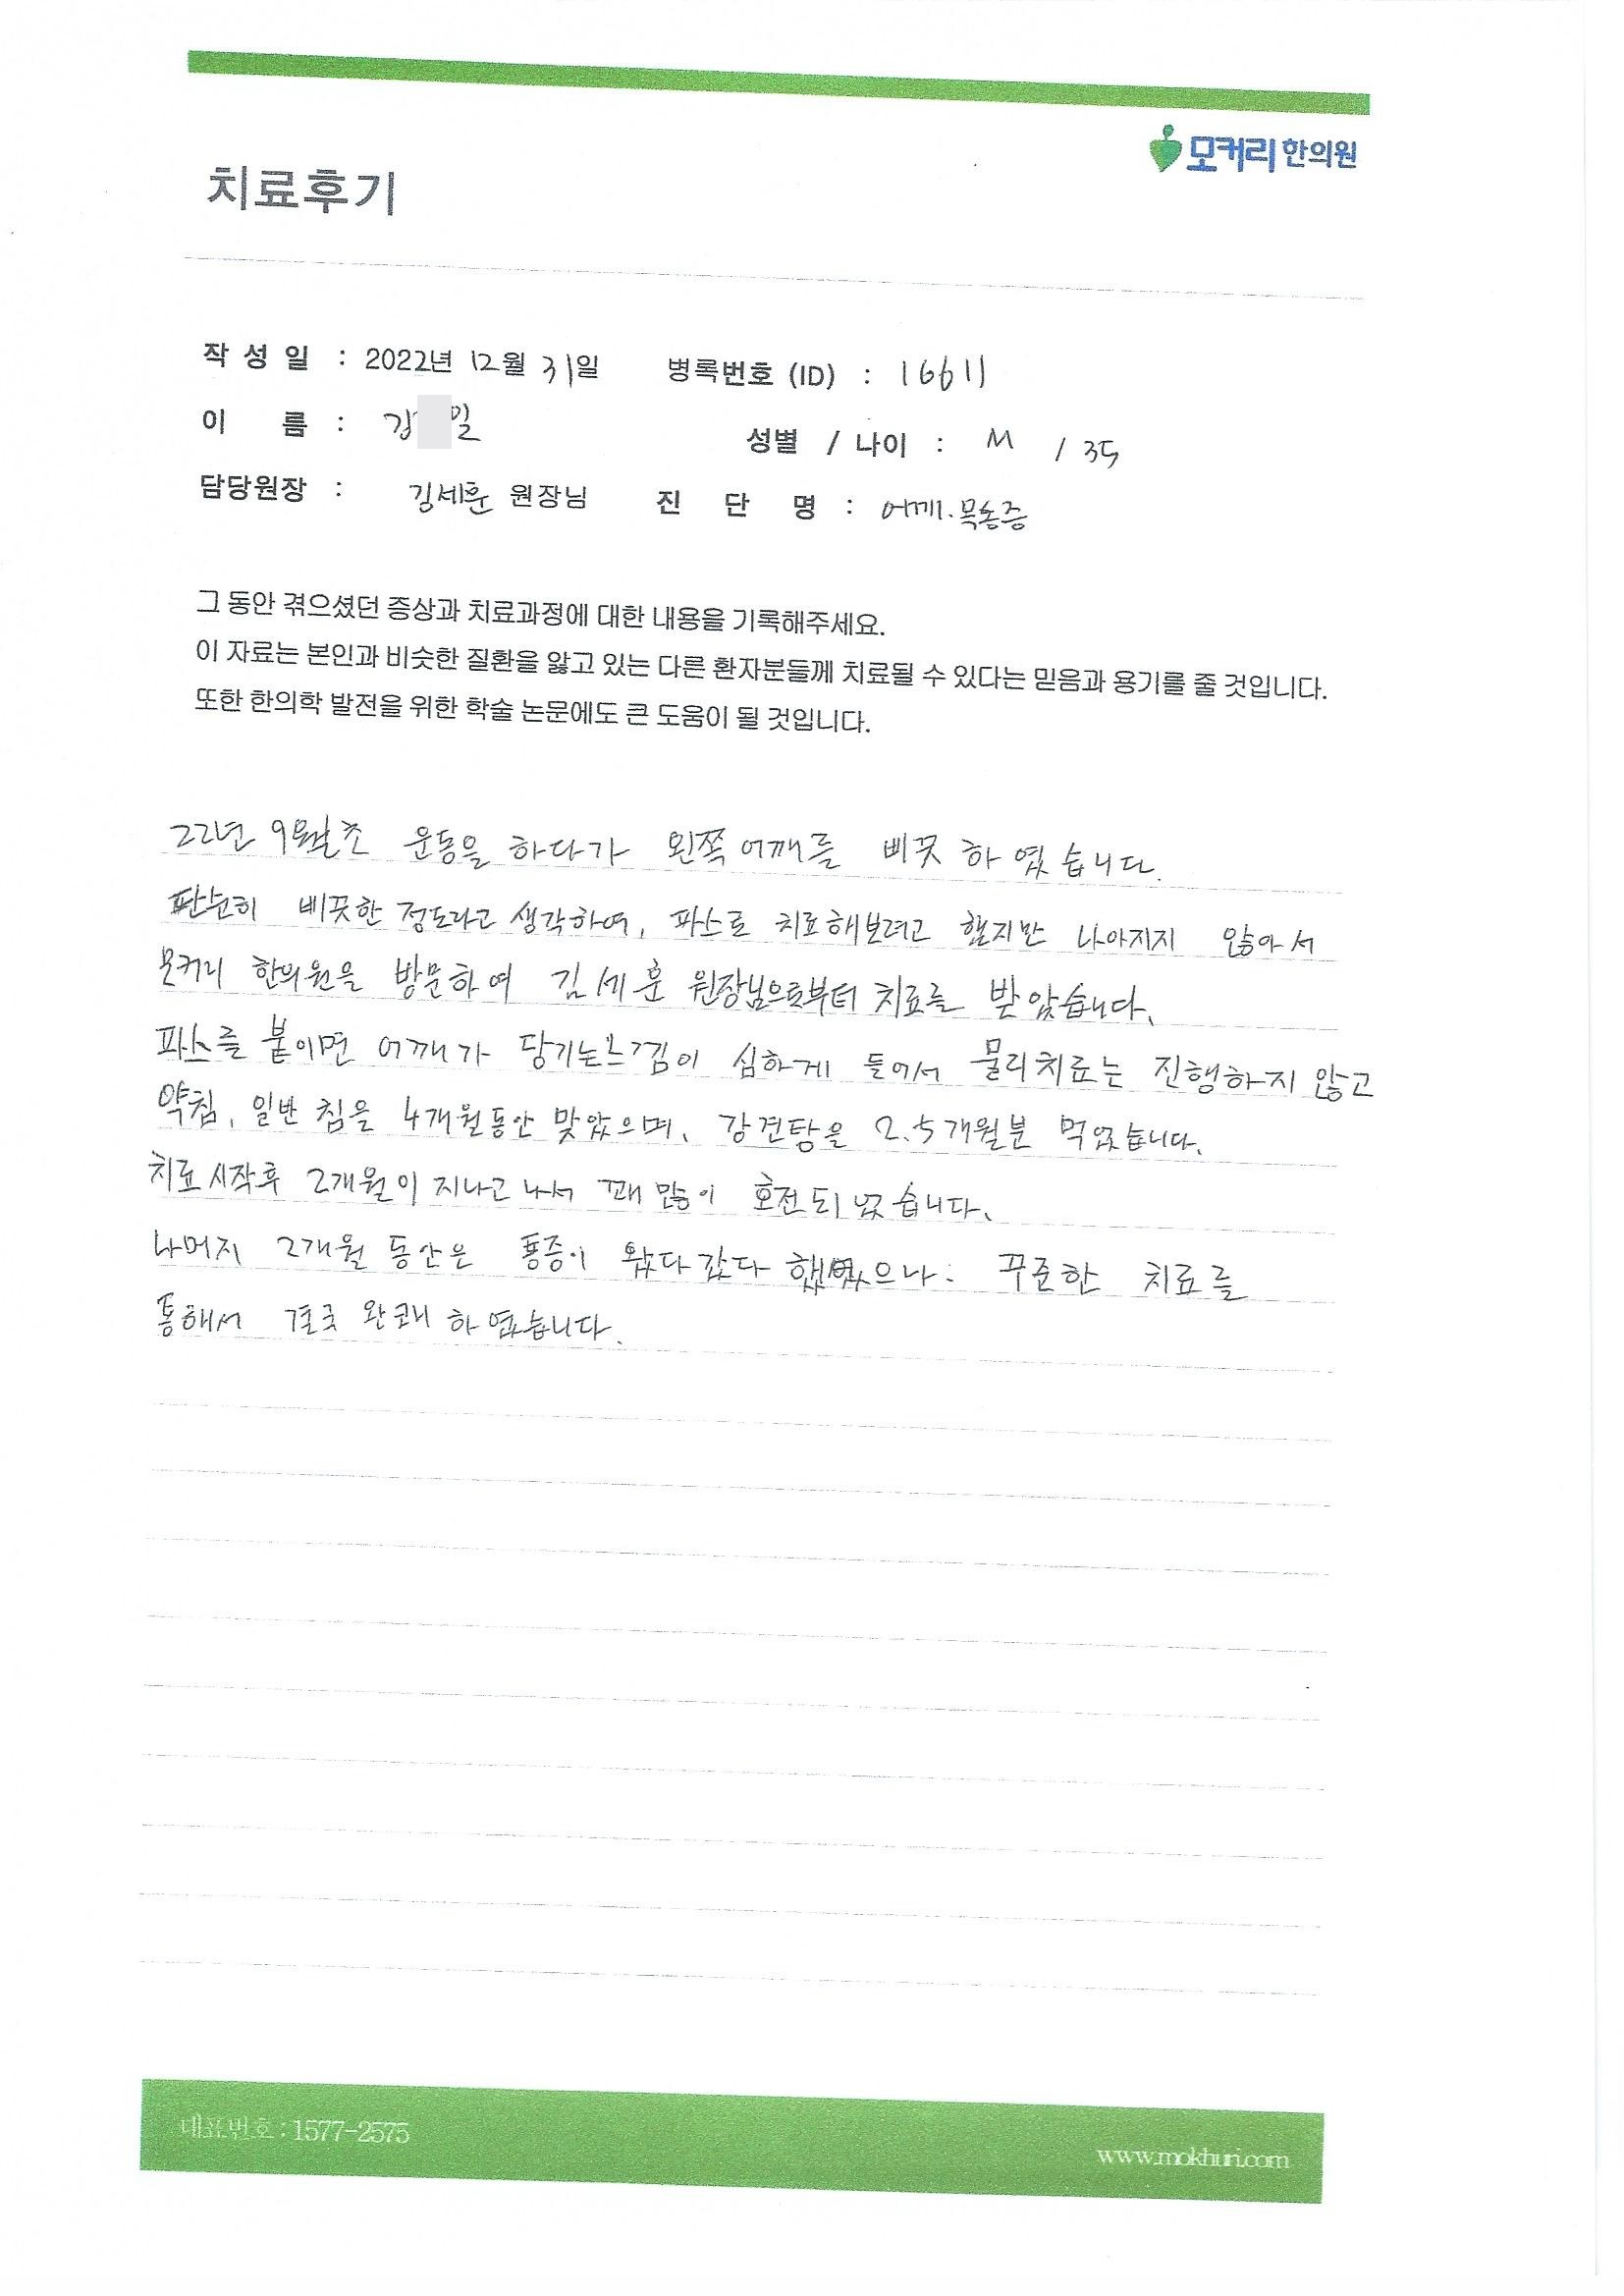 모커리한의원
치료후기
작 성 일 : 2022년 12월 31일 병록번호 (ID) : 16611
이 름 : 김 일 성별 / 나이 : M / 35
담당원장 : 김세훈 원장님 진 단 명 : 어깨.목통증
그 동안 겪으셨던 증상과 치료과정에 대한 내용을 기록해주세요.
이 자료는 본인과 비슷한 질환을 앓고 있는 다른 환자분들께 치료될 수 있다는 믿음과 용기를 줄 것입니다.
또한 한의학 발전을 위한 학술 논문에도 큰 도움이 될 것입니다.
22년 9월초 운동을 하다가 왼쪽 어깨를 삐끗 하였습니다.
단순히 삐끗한 정도라고 생각하여, 파스로 치료해보려고 했지만 나아지지 않아서
모커리 한의원을 방문하여 김세훈 원장님으로부터 치료를 받았습니다.
파스를 붙이면 어깨가 당기는느낌이 심하게 들어서 물리치료는 진행하지 않고
약침, 일반 침을 4개월동안 맞았으며, 강견탕을 2.5개월분 먹었습니다.
치료시작후 2개월이 지나고 나서 꽤 많이 호전되었습니다.
나머지 2개월 동안은 통증이 왔다갔다 했었으나. 꾸준한 치료를
통해서 결국 완쾌 하였습니다.
대표번호 : 1577-2575
www.mokhuri.com